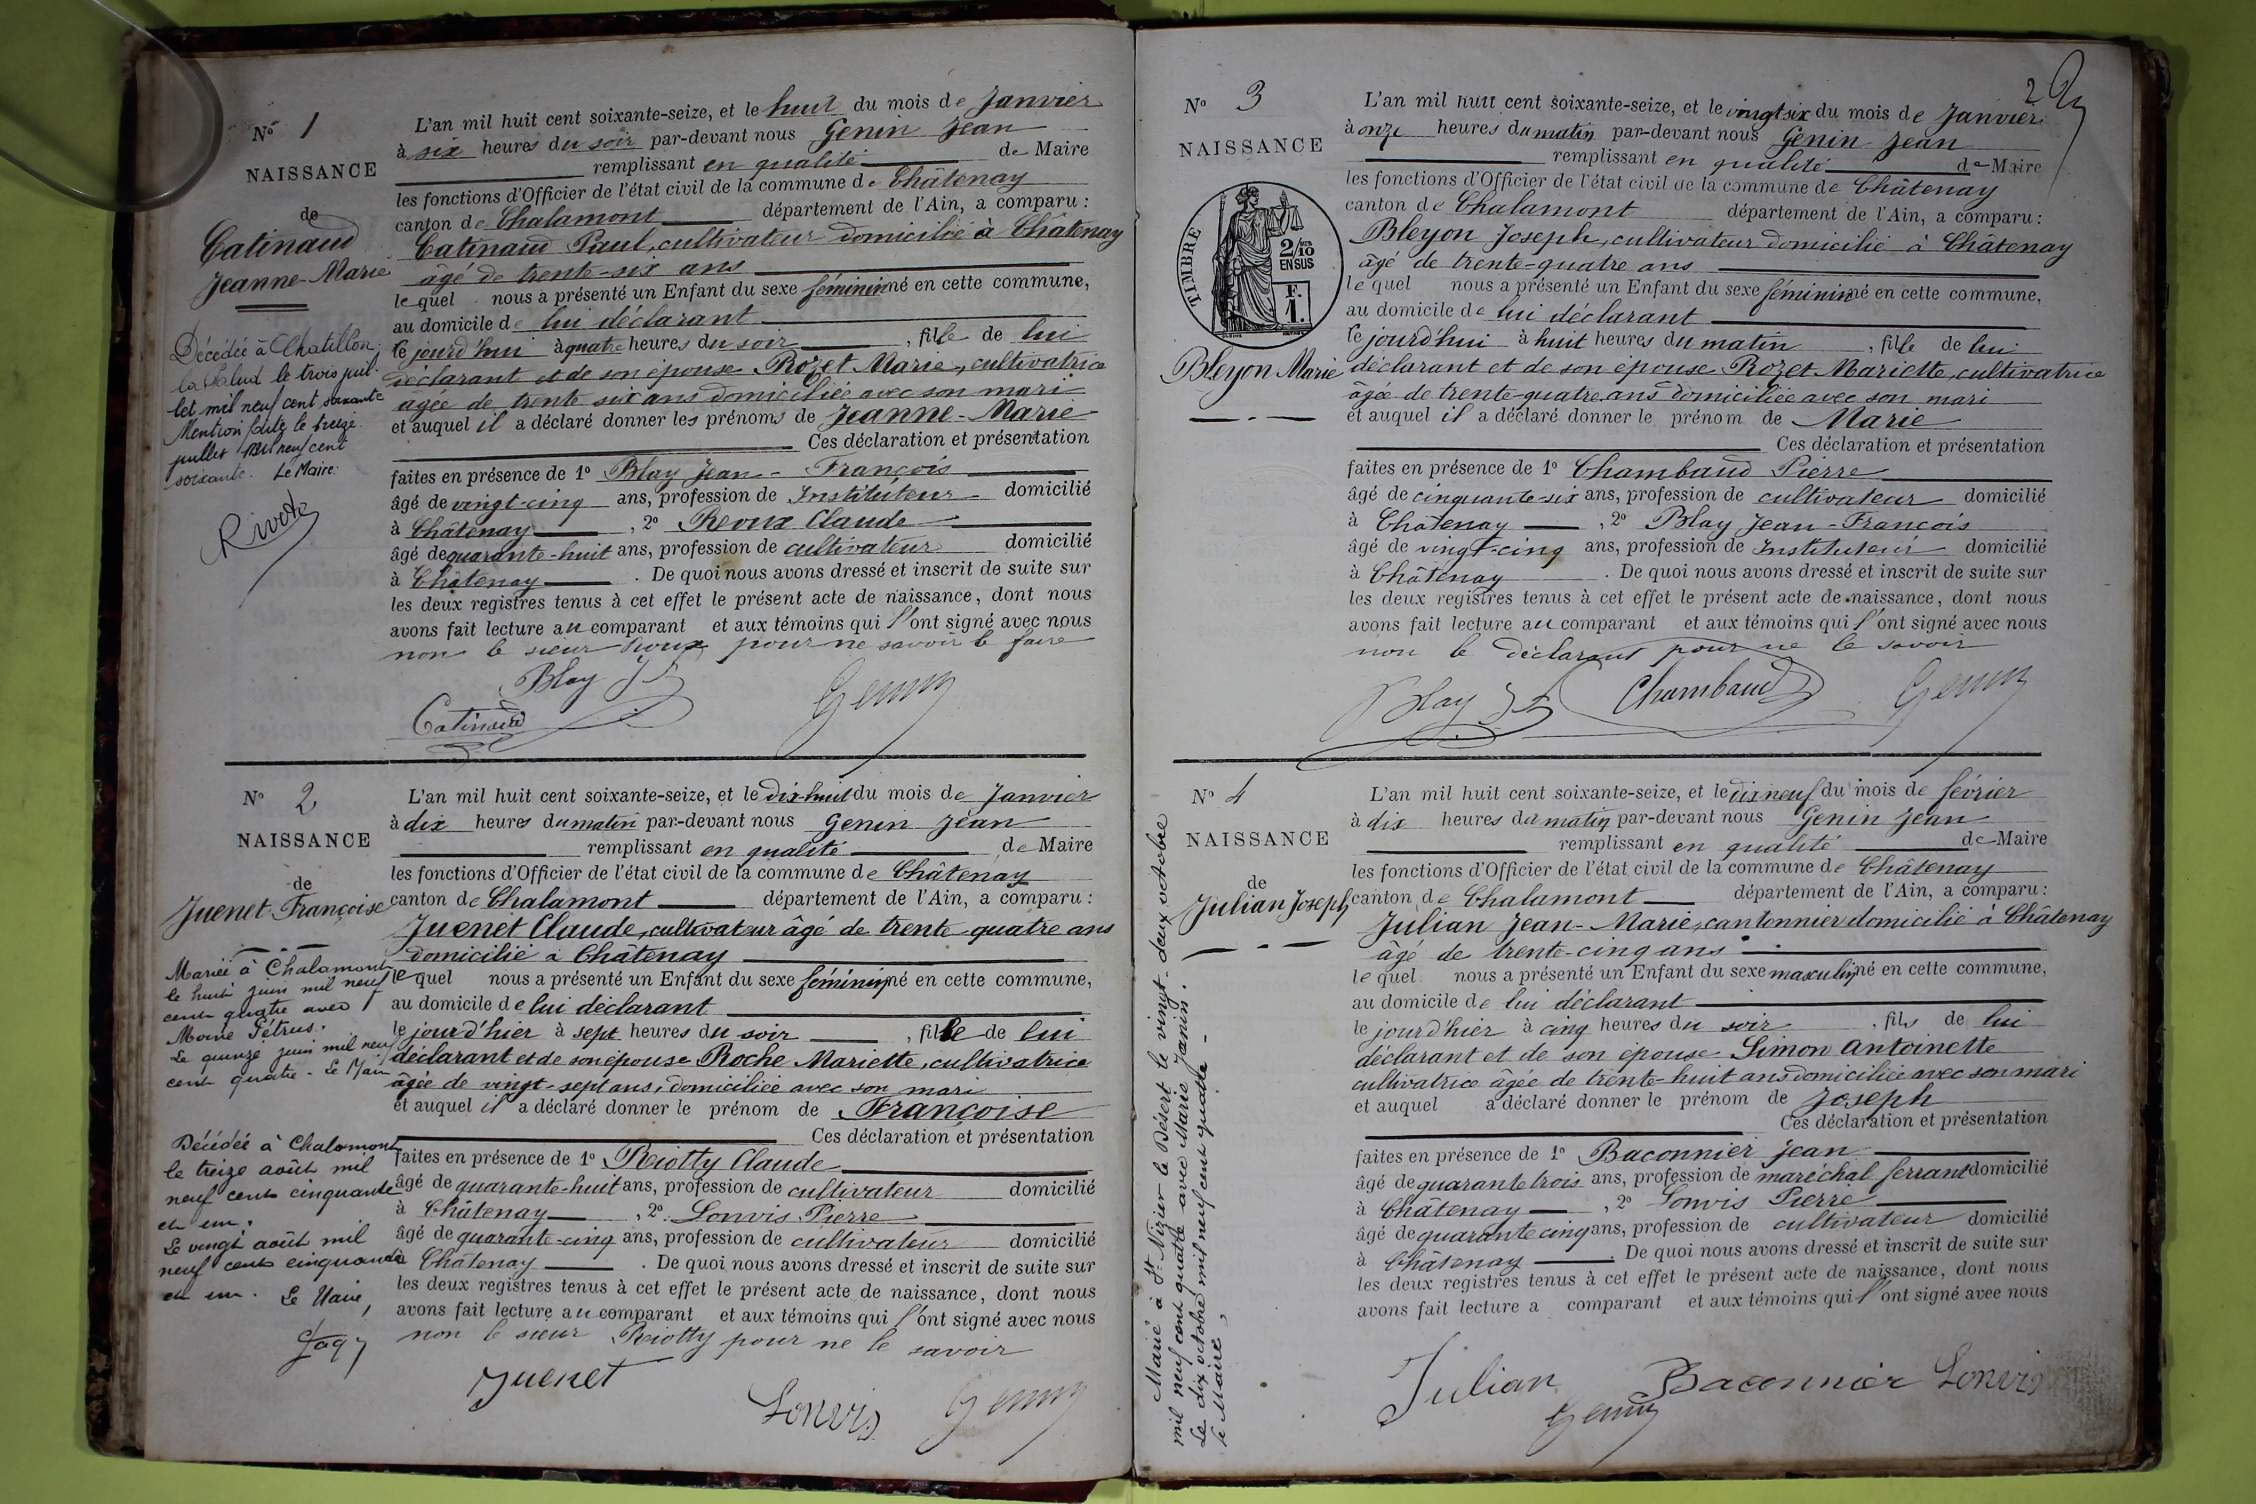 N° 1
NAISSANCE
de
Catinaud
Jeanne-Marie
Décédée à Chatillon
la Palud le trois juil-
let mil neuf cent soixante
Mention faite le treize
juillet mil neuf cent
soixante. Le Maire:
Rivet
L'an mil huit cent soixante-seize, et le huit du mois de Janvier
à six heures du soir par-devant nous Genin Jean
remplissant en qualité de Maire
les fonctions d'Officier de l'état civil de la commune de Châtenay
canton de Chalamont département de l'Ain, a comparu :
Catinaud Paul, cultivateur domicilié à Châtenay
âgé de trente-six ans
lequel nous a présenté un Enfant du sexe féminin né en cette commune,
au domicile de lui déclarant
le jourd'hui à quatre heures du soir , fille de lui
déclarant et de son épouse Rozet Marie, cultivatrice
agée de trente six ans domiciliée avec son mari
et auquel il a déclaré donner les prénoms de Jeanne-Marie
Ces déclaration et présentation
faites en présence de 1° Blay Jean-François
âgé de vingt-cinq ans, profession de Instituteur domicilié
à Châtenay , 2° Rioux Claude
âgé de quarante-huit ans, profession de cultivateur domicilié
à Châtenay . De quoi nous avons dressé et inscrit de suite sur
les deux registres tenus à cet effet le présent acte de naissance, dont nous
avons fait lecture au comparant et aux témoins qui l'ont signé avec nous
non le sieur Rioux pour ne savoir le faire
Blay Jn
Catinaud Genin
N° 2
NAISSANCE
de
Juenet Françoise
Mariée à Chalamont
le huit juin mil neuf
cent quatre avec
Moine Pétrus.
Le quinze juin mil neuf
cent quatre - Le Maire
Décédée à Chalamont
le treize août mil
neuf cent cinquante
et un.
Le vingt août mil
neuf cent cinquante
et un. Le Maire,
L'an mil huit cent soixante-seize, et le dix-huit du mois de Janvier
à dix heures du matin par-devant nous Genin Jean
remplissant en qualité de Maire
les fonctions d'Officier de l'état civil de la commune de Châtenay
canton de Chalamont département de l'Ain, a comparu :
Juenet Claude, cultivateur âgé de trente-quatre ans
domicilié à Châtenay
lequel nous a présenté un Enfant du sexe féminin né en cette commune,
au domicile de lui déclarant
le jourd'hier à sept heures du soir , fille de lui
déclarant et de son épouse Roche Mariette, cultivatrice
âgée de vingt-sept ans, domiciliée avec son mari
et auquel il a déclaré donner le prénom de Françoise
Ces déclaration et présentation
faites en présence de 1° Riotty Claude
âgé de quarante-huit ans, profession de cultivateur domicilié
à Châtenay , 2° Lonvis Pierre
âgé de quarante-cinq ans, profession de cultivateur domicilié
à Châtenay . De quoi nous avons dressé et inscrit de suite sur
les deux registres tenus à cet effet le présent acte de naissance, dont nous
avons fait lecture au comparant et aux témoins qui l'ont signé avec nous
non le sieur Riotty pour ne le savoir
Juenet
Lonvis Genin
2
N° 3
NAISSANCE
TIMBRE
2/10 EN SUS
F. 1.
Bleyon Marie
L'an mil huit cent soixante-seize, et le vingt six du mois de Janvier
à onze heures du matin par-devant nous Genin Jean
remplissant en qualité de Maire
les fonctions d'Officier de l'état civil de la commune de Châtenay
canton de Chalamont département de l'Ain, a comparu :
Bleyon Joseph, cultivateur domicilié à Châtenay
âgé de trente-quatre ans
lequel nous a présenté un Enfant du sexe féminin né en cette commune,
au domicile de lui déclarant
le jourd'hui à huit heures du matin , fille de lui
déclarant et de son épouse Rozet Mariette, cultivatrice
âgée de trente-quatre ans domiciliée avec son mari
et auquel il a déclaré donner le prénom de Marie
Ces déclaration et présentation
faites en présence de 1° Chambaud Pierre
âgé de cinquante-six ans, profession de cultivateur domicilié
à Châtenay , 2° Blay Jean-François
âgé de vingt-cinq ans, profession de Instituteur domicilié
à Châtenay . De quoi nous avons dressé et inscrit de suite sur
les deux registres tenus à cet effet le présent acte de naissance, dont nous
avons fait lecture au comparant et aux témoins qui l'ont signé avec nous
non le déclarant pour ne le savoir
Blay Jn Chambaud Genin
N° 4
NAISSANCE
de
Julian Joseph
Marié à St Nizier le Désert le vingt-deux octobre
mil neuf cent quatre avec Marie Janin.
Le dix octobre mil neuf cent quatre -
le Maire,
L'an mil huit cent soixante-seize, et le dix neuf du mois de février
à dix heures du matin par-devant nous Genin Jean
remplissant en qualité de Maire
les fonctions d'Officier de l'état civil de la commune de Châtenay
canton de Chalamont département de l'Ain, a comparu :
Julian Jean-Marie, cantonnier domicilié à Châtenay
âgé de trente-cinq ans
lequel nous a présenté un Enfant du sexe masculin né en cette commune,
au domicile de lui déclarant
le jourd'hier à cinq heures du soir , fils de lui
déclarant et de son épouse Simon Antoinette
cultivatrice âgée de trente-huit ans domiciliée avec son mari
et auquel a déclaré donner le prénom de Joseph
Ces déclaration et présentation
faites en présence de 1° Baconnier Jean
âgé de quarante trois ans, profession de maréchal ferrant domicilié
à Châtenay , 2° Lonvis Pierre
âgé de quarante cinq ans, profession de cultivateur domicilié
à Châtenay . De quoi nous avons dressé et inscrit de suite sur
les deux registres tenus à cet effet le présent acte de naissance, dont nous
avons fait lecture a comparant et aux témoins qui l'ont signé avec nous
Julian Baconnier Lonvis
Genin